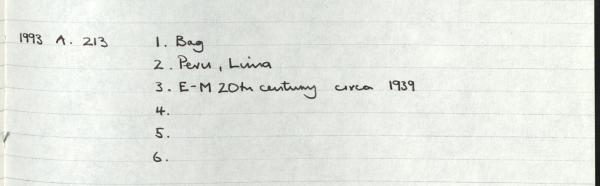 1993 A. 213 1. Bag
2. Peru, Lima
3. E-M 20th century circa 1939
4.
5.
6.